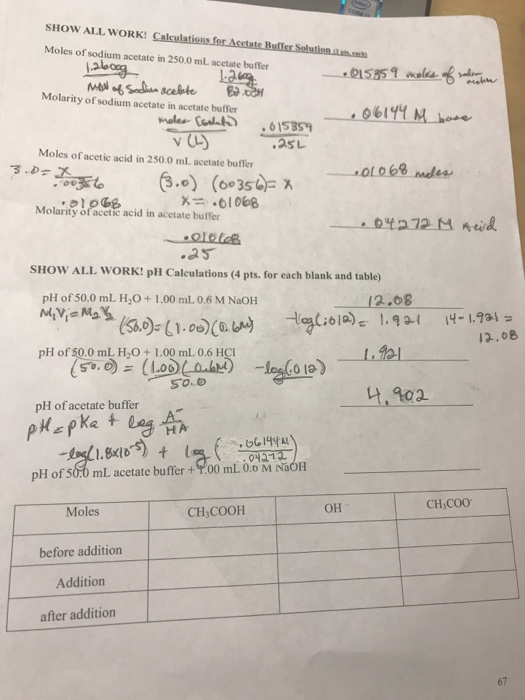 SHOW ALL WORK! Calculations for Acetate Buffer Solution
Moles of sodium acetate in 250.0 mL acetate buffer
1.260g
1.260g
82.034
MW of Sodium acetate
.015359 moles of sodium
Molarity of sodium acetate in acetate buffer
.06144 M base
moles (solute)
V (L)
.015359
.25L
Moles of acetic acid in 250.0 mL acetate buffer
3.0 = X
.00356
(3.0) (00356) = X
X = .01068
.01068 moles
.01068
Molarity of acetic acid in acetate buffer
.04272 M acid
.01068
.25
SHOW ALL WORK! pH Calculations (4 pts. for each blank and table)
pH of 50.0 mL H₂O + 1.00 mL 0.6 M NaOH
12.08
M₁V₁ = M₂V₂
(50.0) = (1.00)(0.6M)
-log(.012) = 1.921
14-1.921 =
12.08
pH of 50.0 mL H₂O + 1.00 mL 0.6 HCl
1.921
(50.0) = (1.00)(0.6M)
50.0
-log(.012)
pH of acetate buffer
4.902
pH = pKa + log A⁻
HA
-log(1.8x10⁻⁵) + log (.06144M)
.04272
pH of 50.0 mL acetate buffer + 1.00 mL 0.6 M NaOH
Moles CH₃COOH OH⁻ CH₃COO⁻
before addition
Addition
after addition
67